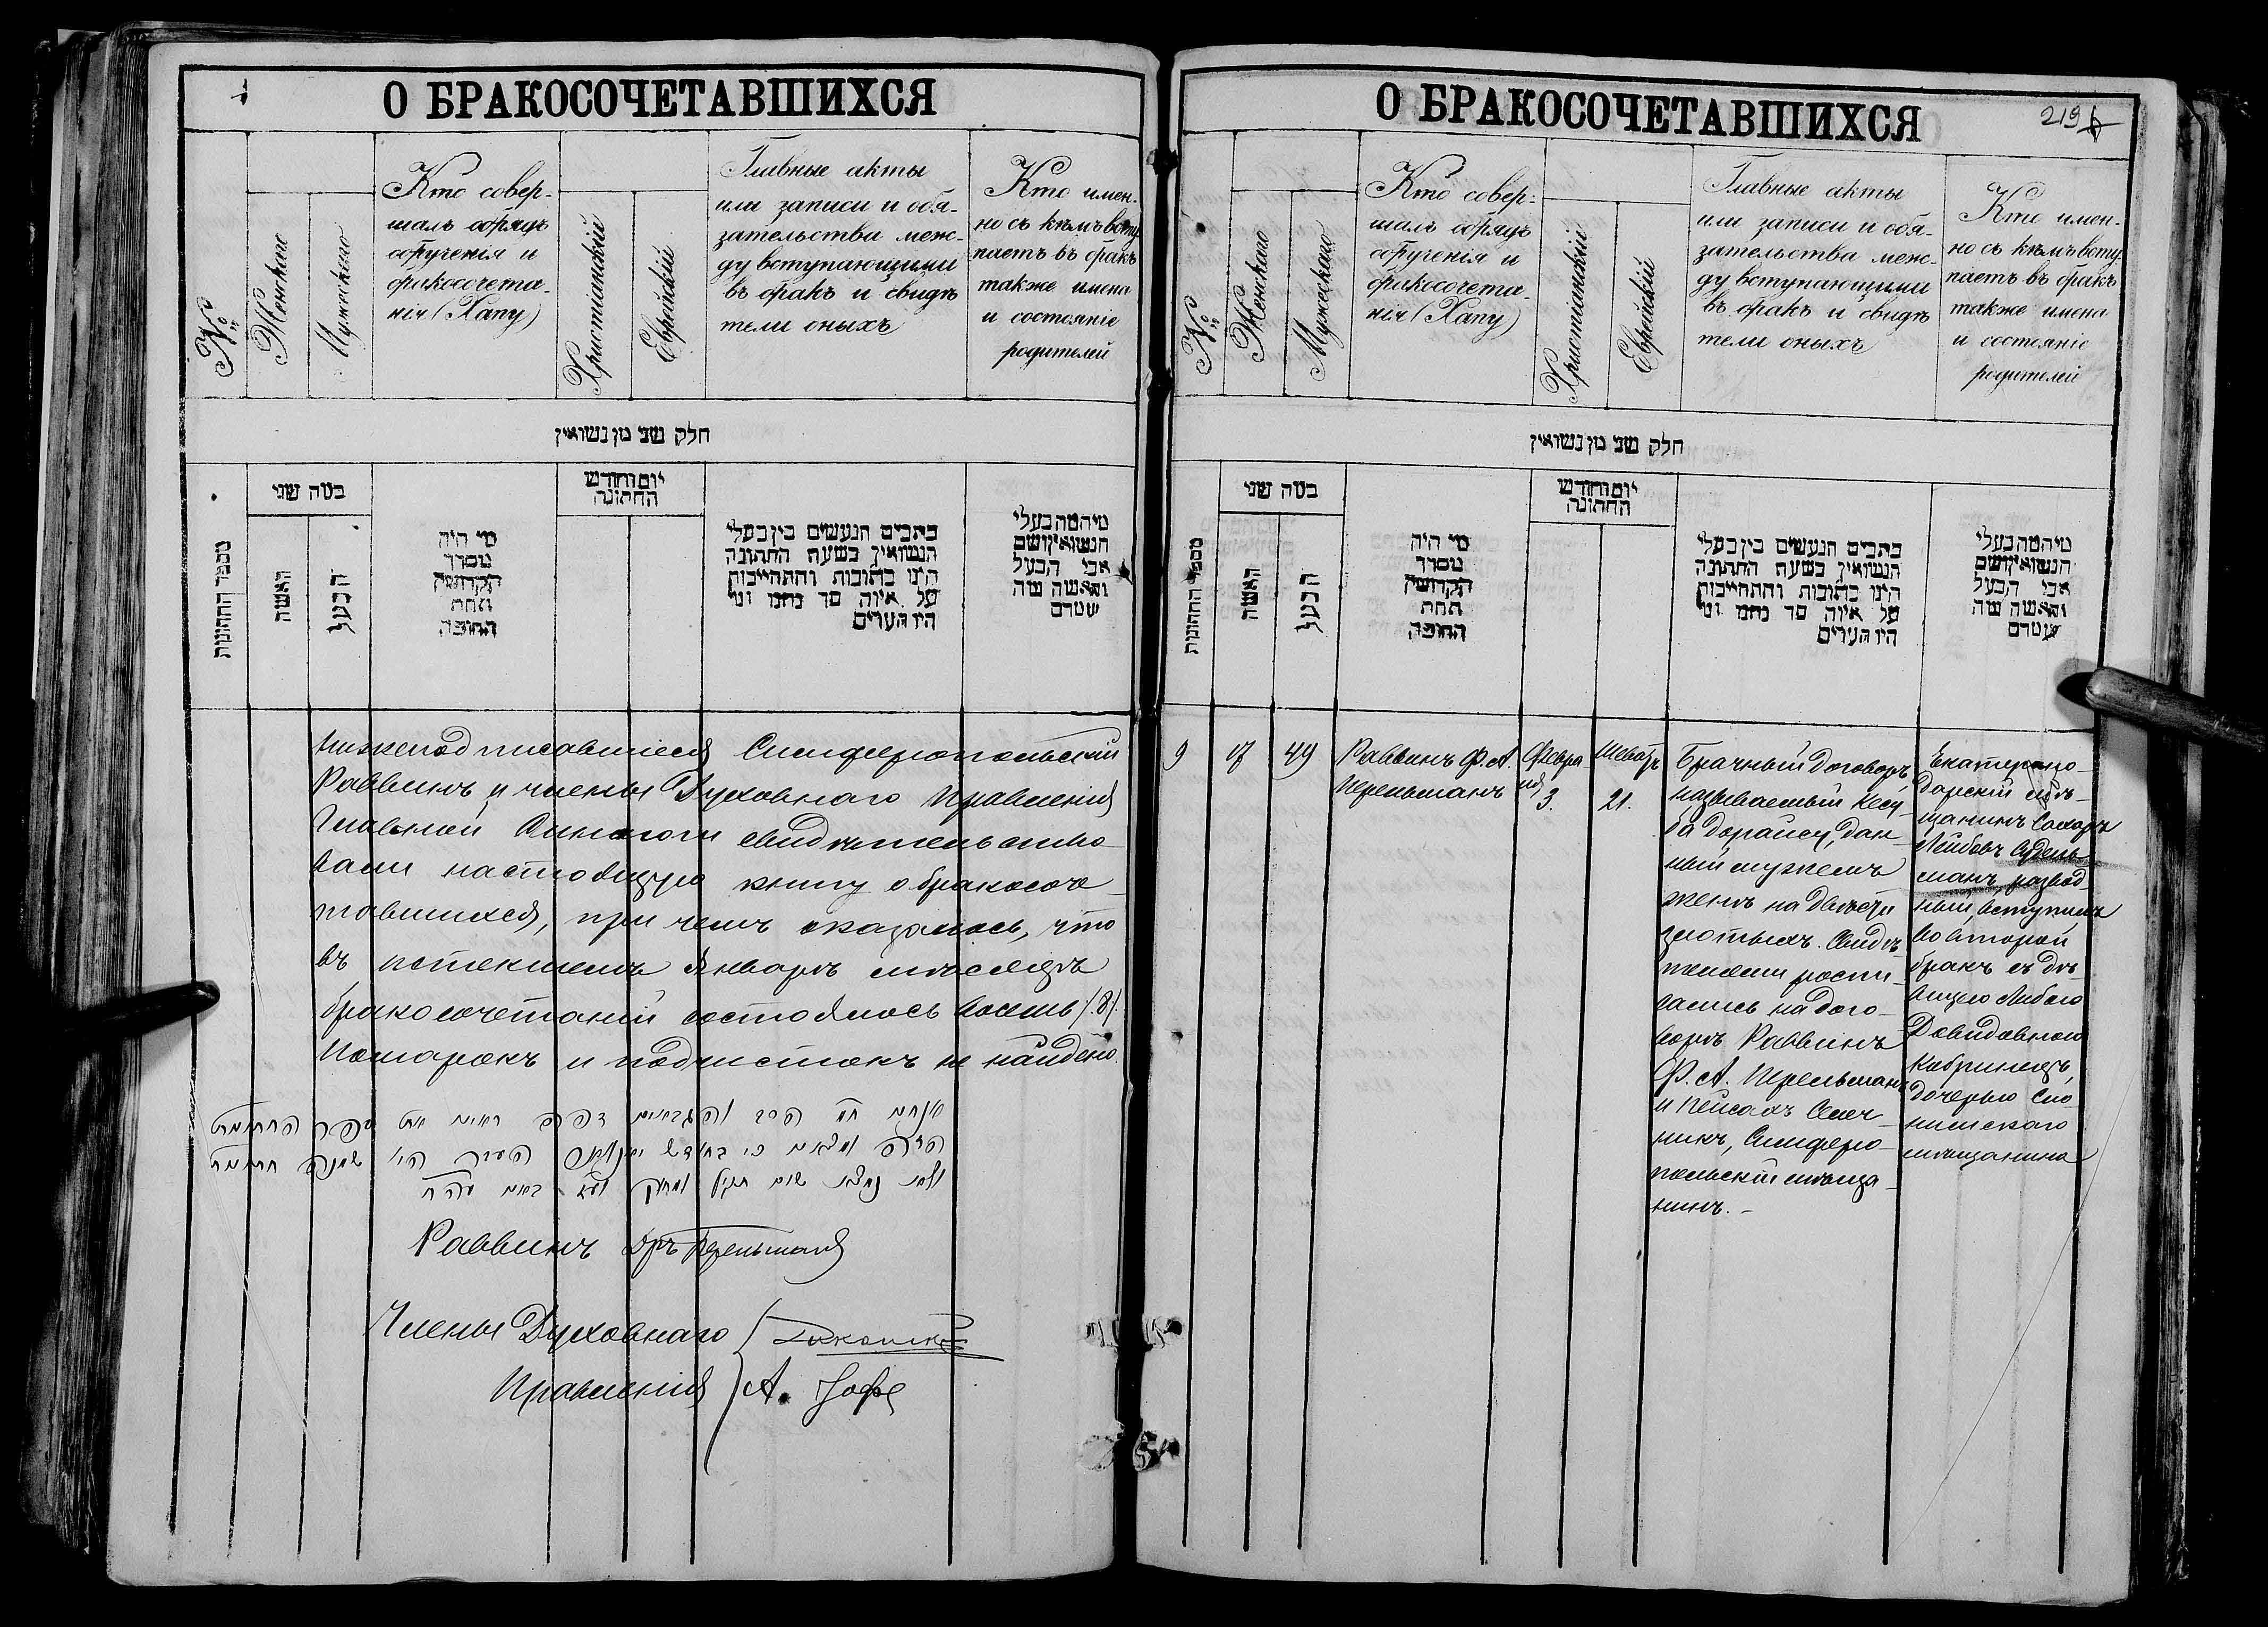 О БРАКОСОЧЕТАВШИХСЯ
№
Женскаго
Мужескаго
Кто совер-
шалъ обрядъ
обрученія и
бракосочета-
нія (Хапу)
Христіанскій
Еврейскій
Главные акты
или записи и обя-
зательства меж-
ду вступающими
въ бракъ и свидѣ
тели оныхъ
Кто имен-
но съ кѣмъ всту
паетъ въ бракъ
также имена
и состояніе
родителей
חלק שני מן נשואין
מספר החתונות
כמה שני
האשה
הבעל
מי היה
מסדר
הקדושין
תחת
החופה
יום וחודש
החתונה
כתבים הנעשים בין בעלי
הנשואין בשעת החתונה
היינו כתובות והתחייבות
על איזה סך
היו העדים
אבי הבעל
והאשה
Нижеподписавшіеся Симферопольскій
Раввинъ и члены Духовнаго Правленія
Главной Синагоги свидѣтельство-
вали настоящую книгу о бракосоче-
тавшихся, при чемъ оказалось, что
въ истекшемъ Январѣ мѣсяцѣ
бракосочетаній состоялось восемь /8/.
Помарокъ и подчистокъ не найдено.
Раввинъ Дръ Перельманъ
Члены Духовнаго
Правленія
А. Іофе
О БРАКОСОЧЕТАВШИХСЯ
219
№
Женскаго
Мужескаго
Кто совер-
шалъ обрядъ
обрученія и
бракосочета-
нія (Хапу)
Христіанскій
Еврейскій
Главные акты
или записи и обя-
зательства меж-
ду вступающими
въ бракъ и свидѣ
тели оныхъ
Кто имен-
но съ кѣмъ всту
паетъ въ бракъ
также имена
и состояніе
родителей
חלק שני מן נשואין
מספר החתונות
כמה שני
האשה
הבעל
מי היה
מסדר
הקדושין
תחת
החופה
יום וחודש
החתונה
כתבים הנעשים בין בעלי
הנשואין בשעת החתונה
היינו כתובות והתחייבות
על איזה סך
היו העדים
אבי הבעל
והאשה
9
49
Раввинъ Ф. А.
Перельманъ
Февра-
ля
3.
Шеватъ
21.
Брачный договоръ,
называемый кесу-
ба дорайсу, дан-
ный мужемъ
женѣ на двѣсти
злотыхъ. Свидѣ-
телями роспи-
сались на дого-
ворѣ Раввинъ
Ф. А. Перельманъ
и Пейсахъ
Симферо-
польскій мѣща-
нинъ. -
Екатерино-
дарскій мѣ-
щанинъ
Лейбовъ
манъ, развод-
ный, вступилъ
во второй
бракъ съ дѣ-
вицею Любою
Давидовною
Кобринецъ,
дочерью Сло-
нимскаго
мѣщанина